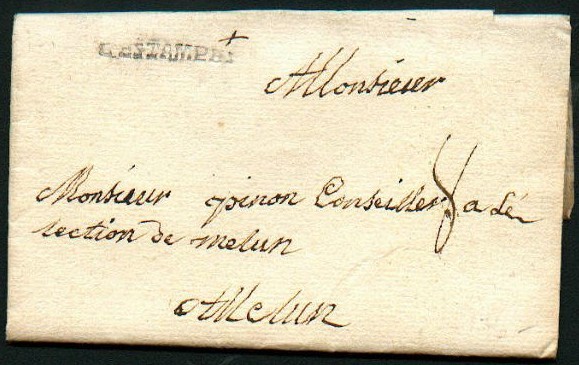 D'ESTAMPES
A Monsieur
Monsieur pinon Conseiller a Lé
8
lection de melun
A Melun